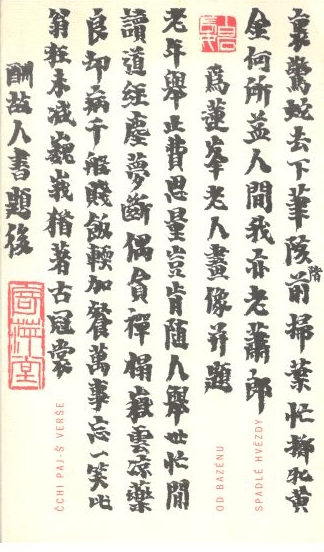 裏驚蛇去下筆階前掃葉忙擲牝黃
金何所益人間我亦老蕭郎
為蓮峯老人畫像并題
老年舉止費思量豈肯隨人舉世忙閒
讀道經塵夢斷偶貪禪榻嶽雲涼藥
良卻病千般賤飯輭加餐萬事忘一笑此
翁狂未減巍峩猶著古冠裳
酬故人書題後
寄萍堂
ČCHI PAJ-Š' VERŠE
OD BAZÉNU
SPADLÉ HVĚZDY